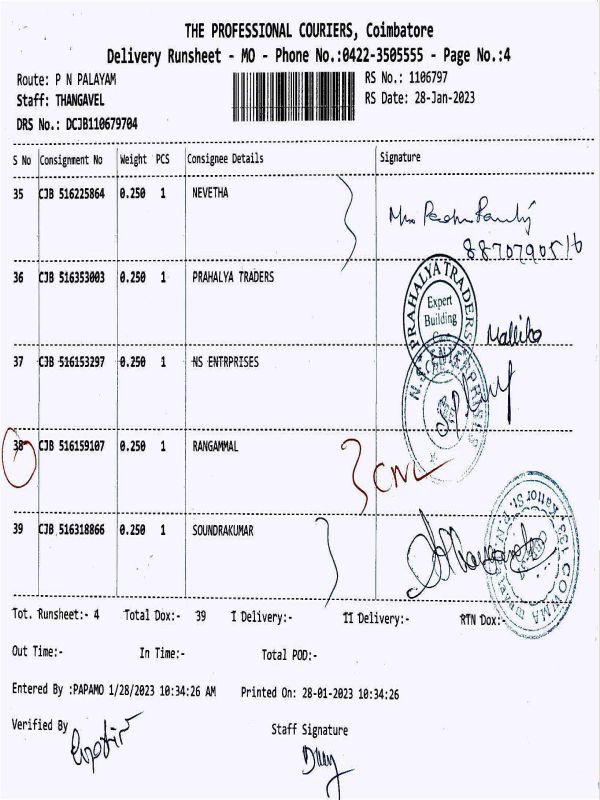 THE PROFESSIONAL COURIERS, Coimbatore
Delivery Runsheet - MO - Phone No.:0422-3505555 - Page No.:4
Route: P N PALAYAM
RS No.: 1106797
Staff: THANGAVEL
RS Date: 28-Jan-2023
DRS No.: DCJB110679704
S No Consignment No Weight PCS Consignee Details Signature
35 CJB 516225864 0.250 1 NEVETHA
8870790516
36 CJB 516353003 0.250 1 PRAHALYA TRADERS
PRAHALYA TRADERS
Expert
Building
Mallika
37 CJB 516153297 0.250 1 NS ENTRPRISES
38 CJB 516159107 0.250 1 RANGAMMAL
CNL
39 CJB 516318866 0.250 1 SOUNDRAKUMAR
Tot. Runsheet:- 4 Total Dox:- 39 I Delivery:- II Delivery:- RTN Dox:-
Out Time:- In Time:- Total POD:-
Entered By :PAPAMO 1/28/2023 10:34:26 AM Printed On: 28-01-2023 10:34:26
Verified By
Staff Signature